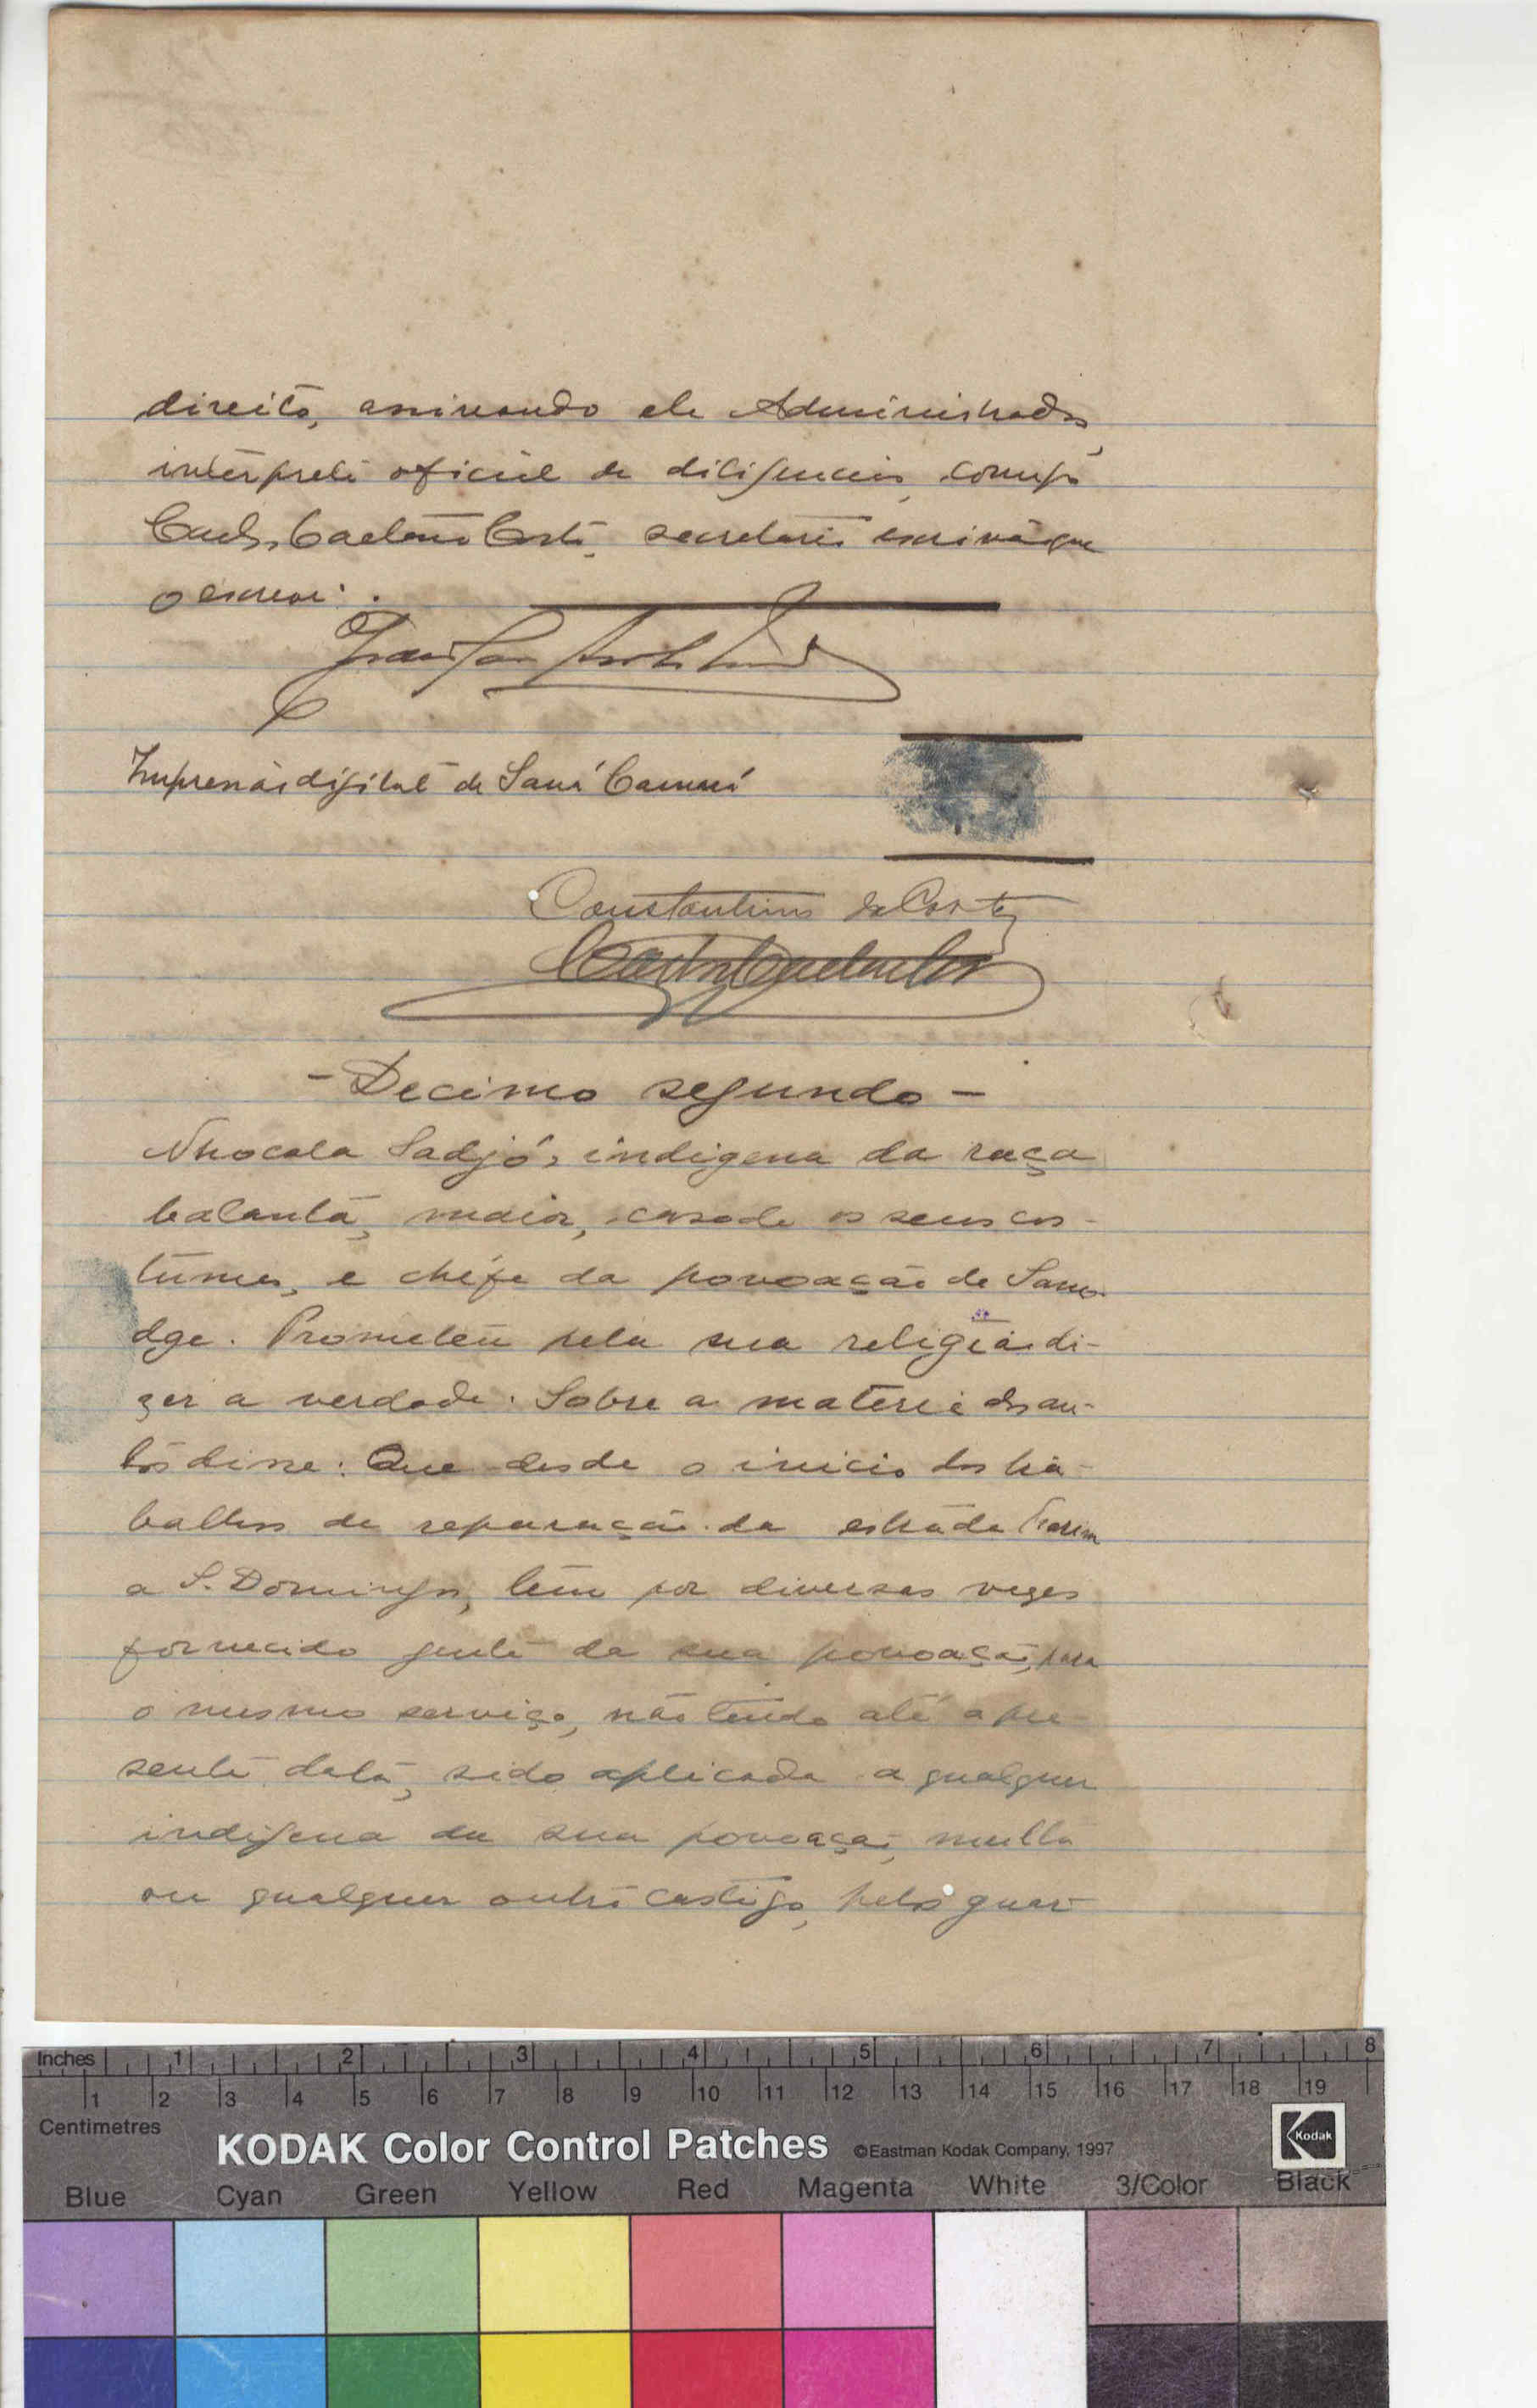 direito, assinando ele Administrador,
intérprete oficial de diligencias, comigo
Carlos Caetano Costa, secretario escrivão que
o escrevi.
Impressão digital de Saná Camará
Constantino da Costa
- Decimo segundo -
Nhocala Sadjó, indigena da raça
balanta, maior, casado os seus cos-
tumes, e chefe da povoação de Sano-
dge. Prometeu pela sua religião di-
zer a verdade. Sobre a materia dos au-
tos disse: Que desde o inicio dos tra-
balhos de reparação da estrada Farim
a S. Domingos, tem por diversas vezes
fornecido gente da sua povoação, para
o mesmo serviço, não tendo até a pre-
sente data, sido aplicada a qualquer
indigena da sua povoação, multa
ou qualquer outro castigo, pelo guar-
Inches 1 2 3 4 5 6 7 8
1 2 3 4 5 6 7 8 9 10 11 12 13 14 15 16 17 18 19
Centimetres
KODAK Color Control Patches ©Eastman Kodak Company, 1997 Kodak
Blue Cyan Green Yellow Red Magenta White 3/Color Black